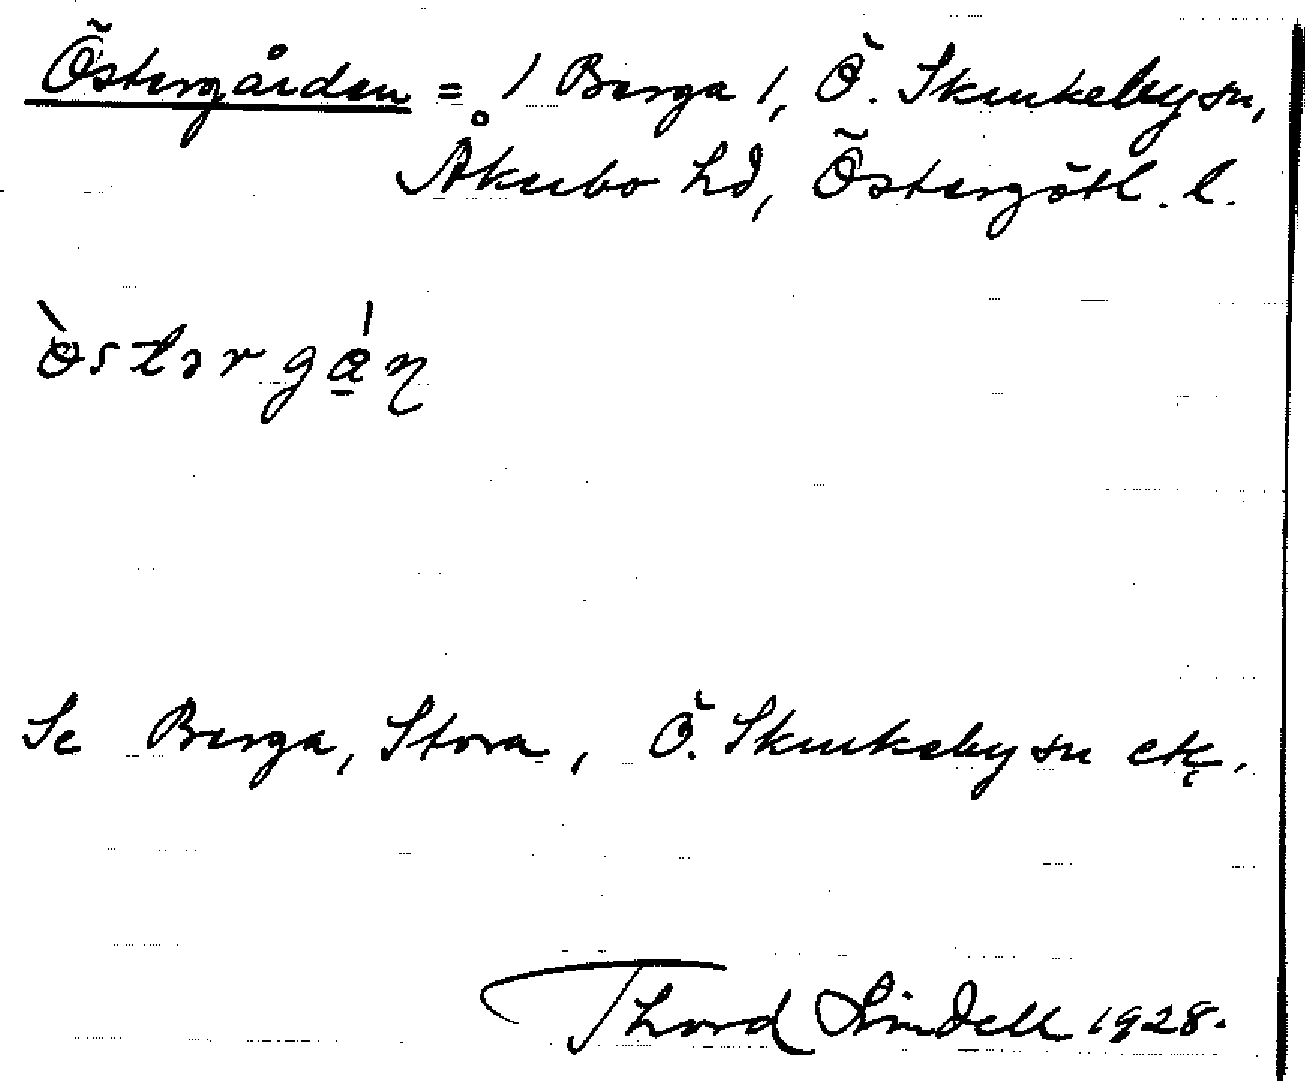 Östergården = / Berga /, Ö. Skrukeby sn,
Åkerbo hd, Östergötl. l.
ø̀stərgá̱ɳ
Se Berga, Stora, Ö. Skrukeby sn etc.
Thord Lindell 1928.